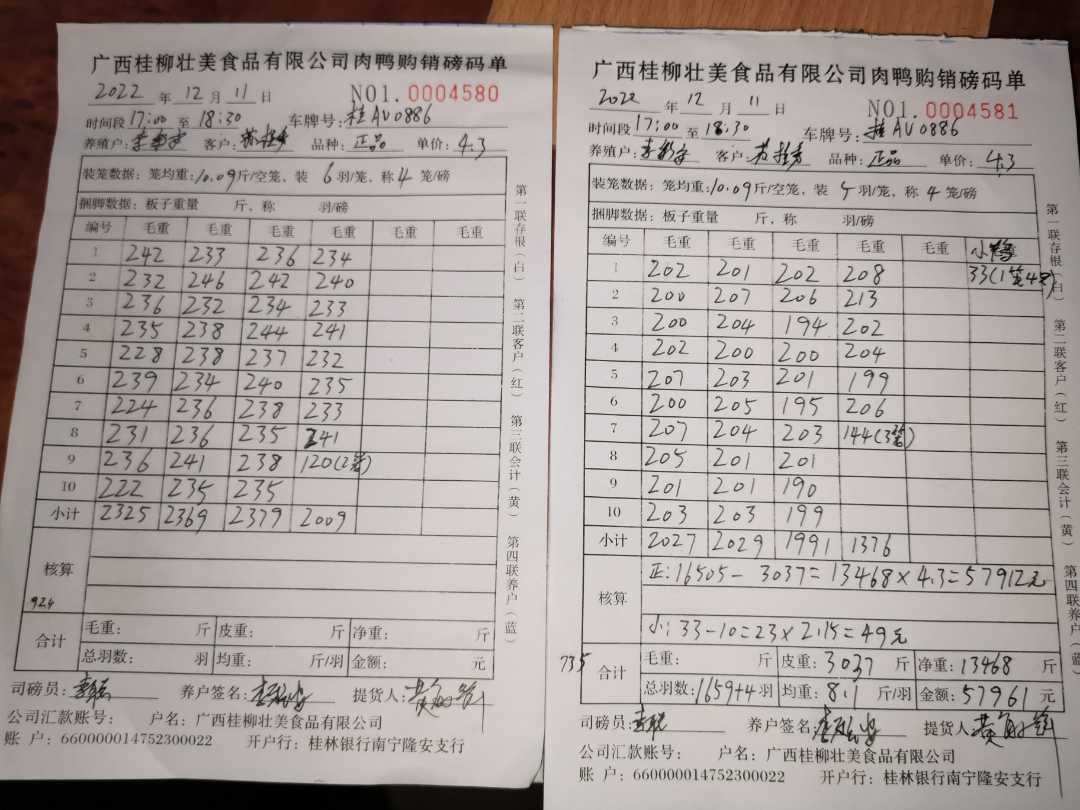 广西桂柳壮美食品有限公司肉鸭购销磅码单
2022 年 12 月 11 日 NO1. 0004580
时间段 17:00 至 18:30 车牌号: 桂AV0886
养殖户: 客户: 品种: 正品 单价: 4.3
装笼数据: 笼均重: 10.09斤/空笼、装 6 羽/笼、称 4 笼/磅
捆脚数据: 板子重量 斤、称 羽/磅
编号 毛重 毛重 毛重 毛重 毛重 毛重
1 242 233 236 234
2 232 246 242 240
3 236 232 234 233
4 235 238 244 241
5 228 238 237 232
6 239 234 240 235
7 224 236 238 233
8 231 236 235 241
9 236 241 238 120(2笼)
10 222 235 235
小计 2325 2369 2379 2009
核算
924
合计 毛重: 斤 皮重: 斤 净重: 斤
总羽数: 羽 均重: 斤/羽 金额: 元
司磅员: 养户签名: 提货人:
公司汇款账号: 户名: 广西桂柳壮美食品有限公司
账 户: 660000014752300022 开户行: 桂林银行南宁隆安支行
第一联存根(白) 第二联客户(红) 第三联会计(黄) 第四联养户(蓝)
广西桂柳壮美食品有限公司肉鸭购销磅码单
2022 年 12 月 11 日 NO1. 0004581
时间段 17:00 至 18:30 车牌号: 桂AV0886
养殖户: 客户: 品种: 正品 单价: 4.3
装笼数据: 笼均重: 10.09斤/空笼、装 5 羽/笼、称 4 笼/磅
捆脚数据: 板子重量 斤、称 羽/磅
编号 毛重 毛重 毛重 毛重 毛重 小鸭
1 202 201 202 208 33(1笼4只)
2 200 207 206 213
3 200 204 194 202
4 202 200 200 204
5 207 203 201 199
6 200 205 195 206
7 207 204 203 144(3笼)
8 205 201 201
9 201 201 190
10 203 203 199
小计 2027 2029 1991 1376
核算 正: 16505-3037=13468×4.3=57912元
小: 33-10=23×2.15=49元
735
合计 毛重: 斤 皮重: 3037 斤 净重: 13468 斤
总羽数: 1659+4 羽 均重: 8.1 斤/羽 金额: 57961 元
司磅员: 养户签名: 提货人:
公司汇款账号: 户名: 广西桂柳壮美食品有限公司
账 户: 660000014752300022 开户行: 桂林银行南宁隆安支行
第一联存根(白) 第二联客户(红) 第三联会计(黄) 第四联养户(蓝)